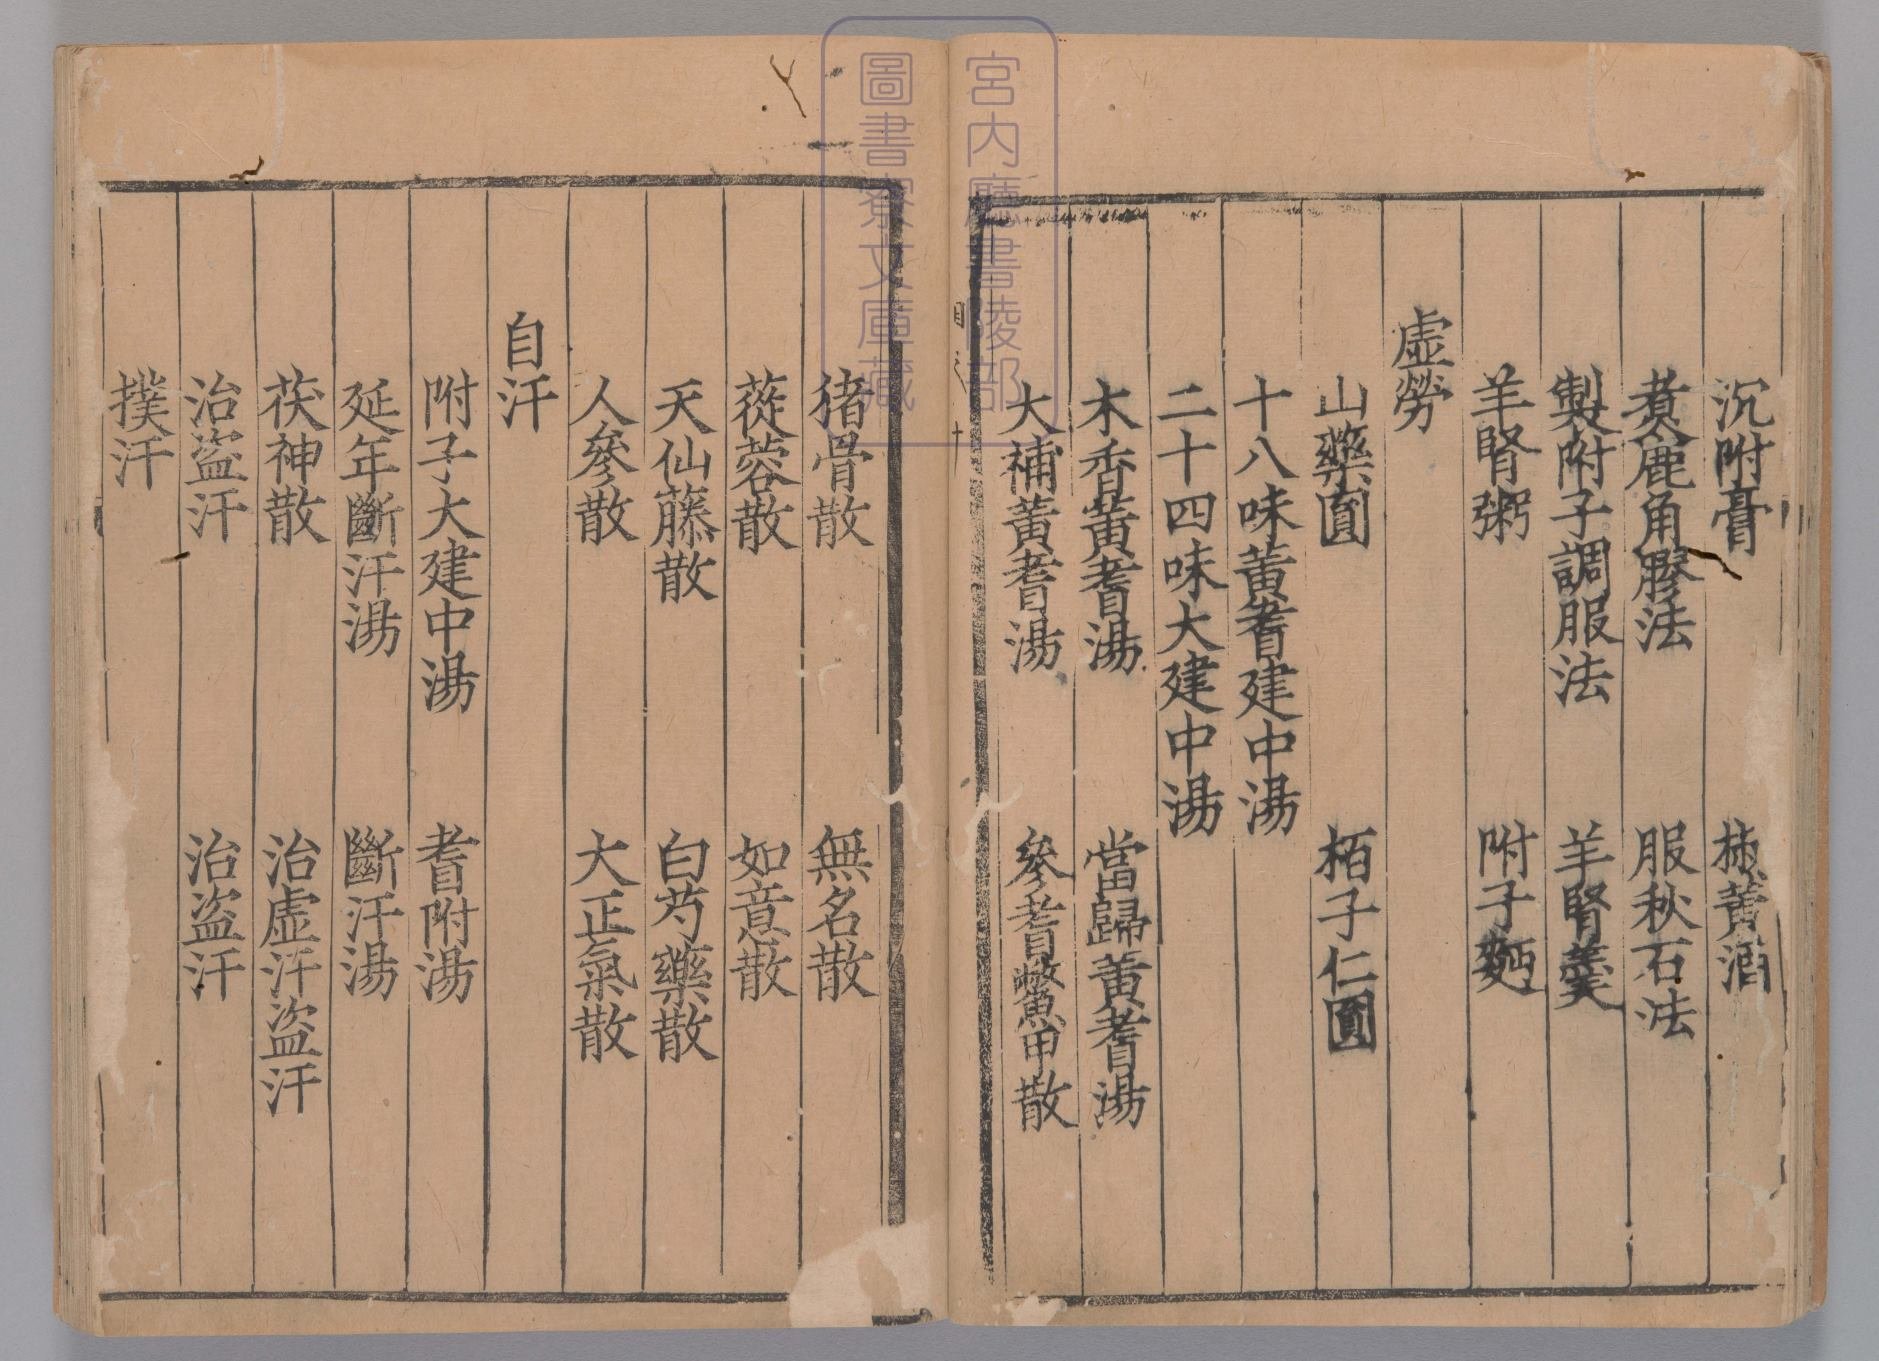 沉附膏　地黄酒
煮鹿角膠法　服秋石法
製附子調服法　羊腎羹
羊腎粥　附子麪
虛勞
山藥圓　栢子仁圓
十八味黃耆建中湯
二十四味大建中湯
木香黃耆湯　當歸黃耆湯
大補黃耆湯　參耆鱉甲散
猪骨散　無名散
蓯蓉散　如意散
天仙藤散　白芍藥散
人參散　大正氣散
自汗
附子大建中湯　耆附湯
延年斷汗湯　斷汗湯
茯神散　治虛汗盜汗
治盜汗　治盜汗
撲汗
宮内廳書陵部
圖書寮文庫藏